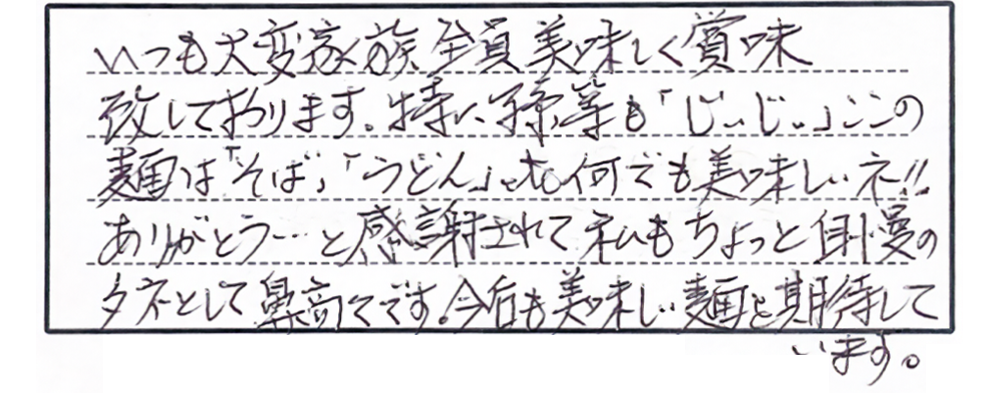 いつも大変家族全員美味しく賞味
致しております。特に孫等も「じぃじぃ」ここの
麺は「そば」「うどん」も何でも美味しいネ!!
ありがとう…と感謝されて私もちょっと自慢の
タネとして鼻高々です。今后も美味しい麺を期待して
います。